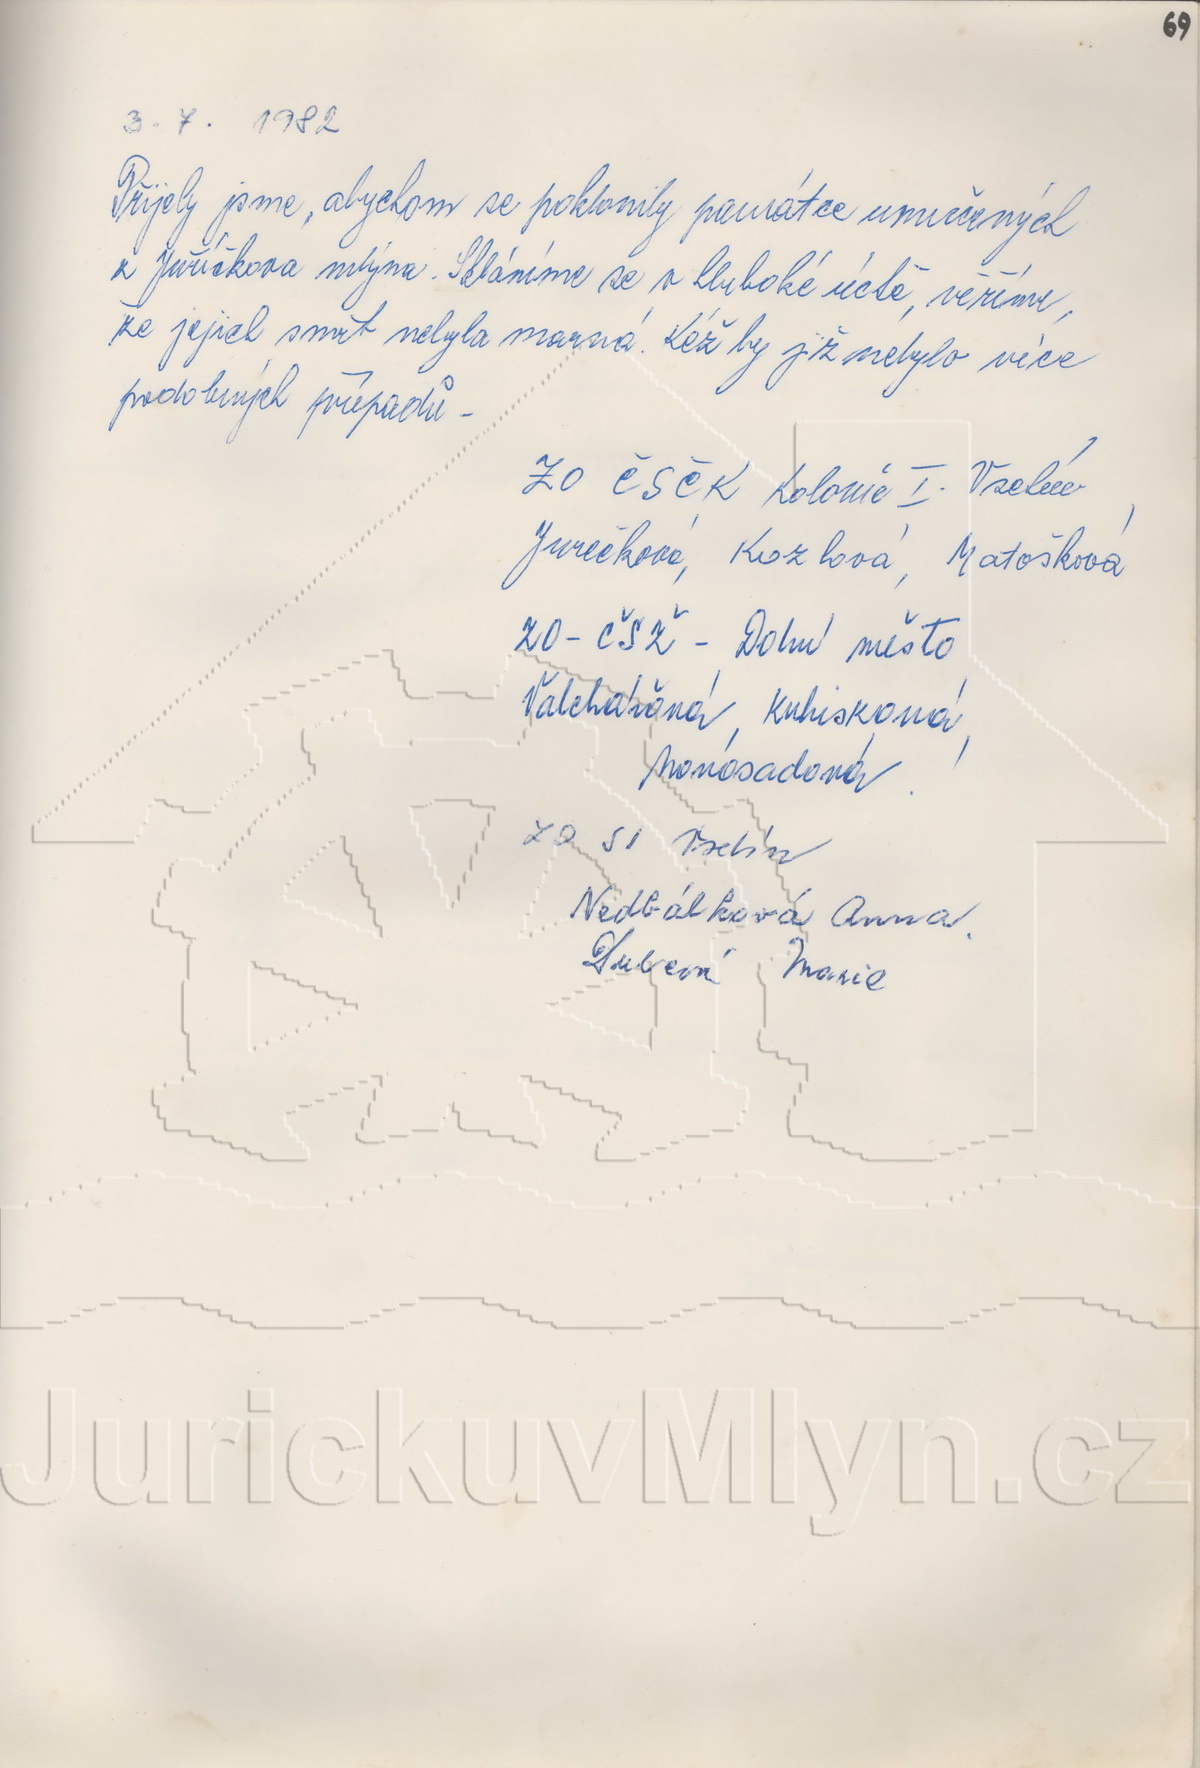 69
3. 7. 1982
Přijely jsme, abychom se poklonily památce umučených
z Juříčkova mlýna. Skláníme se v hluboké úctě, věříme,
že jejich smrt nebyla marná. Kéž by již nebylo více
podobných případů -
ZO ČSČK Kolonie I. Vsetín
Jurečková, Kozlová, Matošková
ZO - ČSŽ - Dolní město
Valchářová, Kubisková,
Novosadová.
ZO Vsetín
Nedbálková Anna.
Marie
JurickuvMlyn.cz